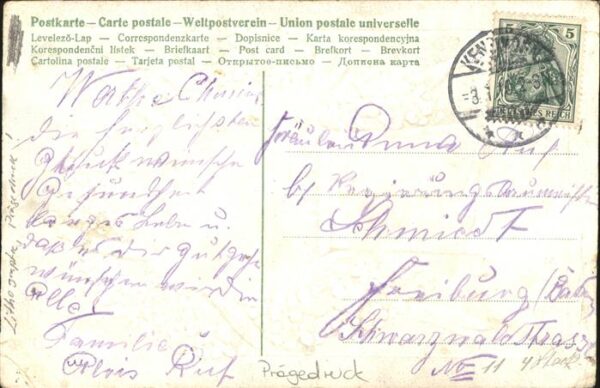 Postkarte – Carte postale – Weltpostverein – Union postale universelle
Levelező-Lap – Correspondenzkarte – Dopisnice – Karta korespondencyjna
Korespondenční lístek – Briefkaart – Post card – Brefkort – Brevkort
Cartolina postale – Tarjeta postal – Открытое-письмо – Дописна карта
5 5
DEUTSCHES REICH
die herzlichsten
Glückwünsche
Gesundheit
langes Leben u.
daß es dir gut gehe
wünschen wir die
Alle
Familie
Alois Ruf
Fräulein Anna Ruf
bei Regierungsbaumeister
Schmidt
Freiburg (Baden)
Schwarzwaldstrasse
No 11 4 Stock
Prägedruck
Lithographie, Prägedruck!